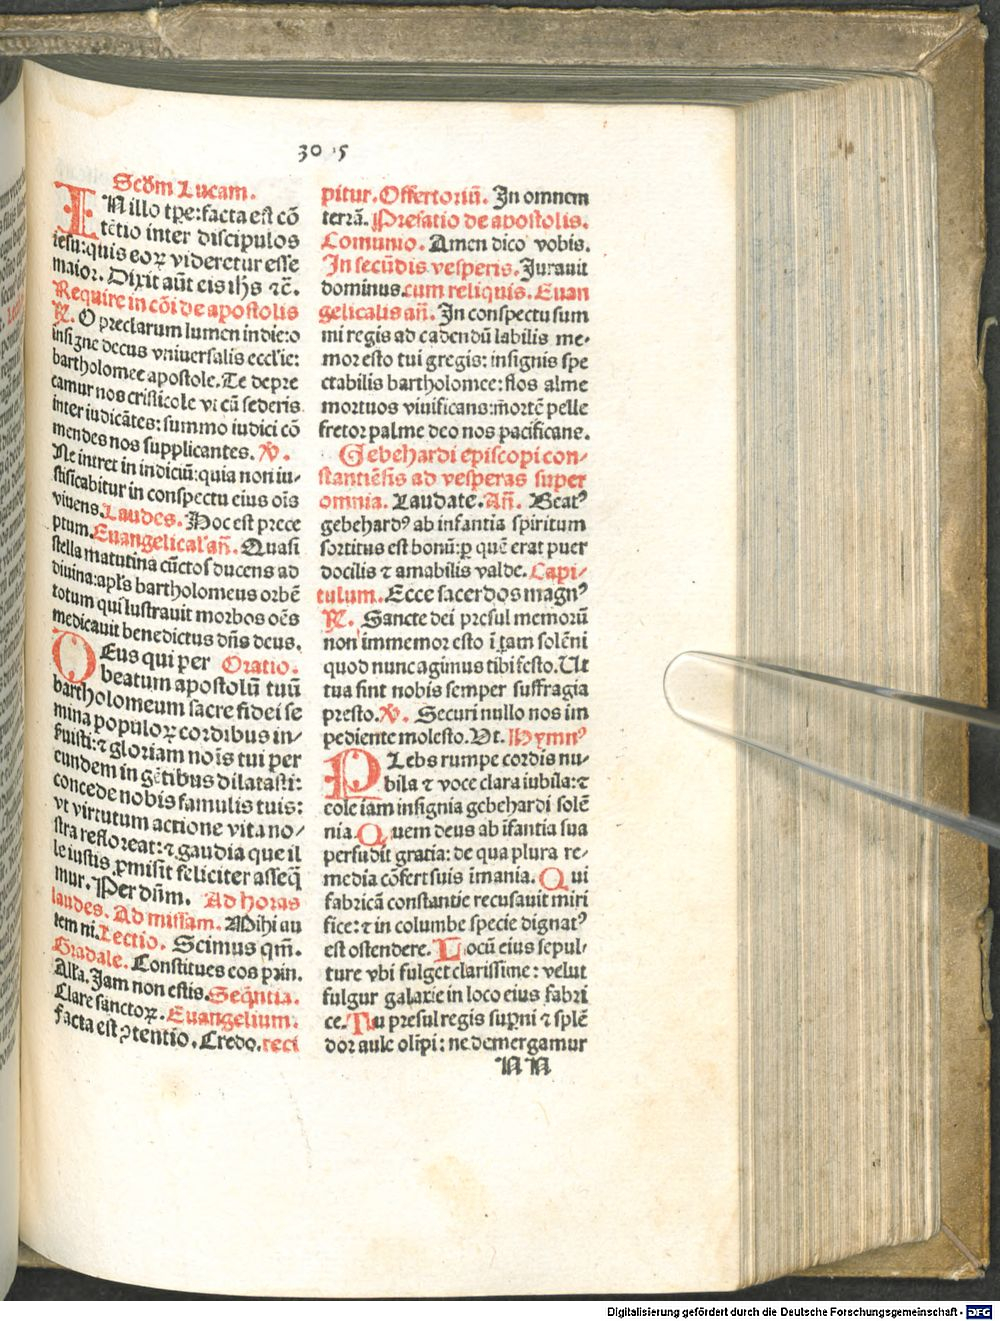 30 5
Scd̃m Lucam.
IN illo tp̃e: facta est cõ
tẽtio inter discipulos
iesu: quis eoꝝ videretur esse
maior. Dixit aũt eis ihs ⁊c̃.
Require in cõi de apostolis
℟. O preclarum lumen indie: o
insigne decus vniuersalis eccl'ie:
bartholomee apostole. Te depre
camur nos cristicole vt cũ sederis
inter iudicãtes: summo iudici cõ
mendes nos supplicantes. ℣.
Ne intret in indiciũ: quia non iu-
stificabitur in conspectu eius oĩs
viuens. Laudes. Hoc est prece
ptum. Euangelical' añ. Quasi
stella matutina cũctos ducens ad
diuina: apl's bartholomeus orbẽ
totum qui lustrauit morbos oẽs
medicauit benedictus dñs deus.
DEus qui per Oratio.
beatum apostolũ tuũ
bartholomeum sacre fidei se
mina populoꝝ cordibus in-
fuisti: ⁊ gloriam noĩs tui per
eundem in gẽtibus dilatasti:
concede nobis famulis tuis:
vt virtutum actione vita no-
stra refloreat: ⁊ gaudia que il
le iustis ꝓmisit feliciter asseq̃
mur. Per dñm. Ad horas
laudes. Ad missam. Mihi au
tem ni. Lectio. Scimus qm̃.
Gradale. Constitues eos prin.
Alľa. Jam non estis. Seq̃ntia.
Clare sanctoꝝ. Euangelium.
Facta est ꝯtentio. Credo. reci
pitur. Offertoriũ. In omnem
terrã. Prefatio de apostolis.
Comunio. Amen dico vobis.
In secũdis vesperis. Jurauit
dominus. cum reliquis. Euan
gelicalis añ. In conspectu sum
mi regis ad cadendũ labilis me-
mor esto tui gregis: insignis spe
ctabilis bartholomee: flos alme
mortuos viuificans: mortẽ pelle
fretor palme deo nos pacificane.
Gebehardi episcopi con-
stantiẽsis ad vesperas super
omnia. Laudate. Añ. Beatꝰ
gebehardꝰ ab infantia spiritum
sortitus est bonũ: ꝑ quẽ erat puer
docilis ⁊ amabilis valde. Capi-
tulum. Ecce sacerdos magnꝰ
℟. Sancte dei presul memorũ
non immemor esto ĩ tam solẽni
quod nunc agimus tibi festo. Ut
tua sint nobis semper suffragia
presto. ℣. Securi nullo nos im
pediente molesto. Vt. Hymnꝰ
PLebs rumpe cordis nu-
bila ⁊ voce clara iubila: ⁊
cole iam insignia gebehardi solẽ
nia. Quem deus ab ĩfantia sua
perfudit gratia: de qua plura re-
media cõfert suis ĩmania. Qui
fabricã constantie recusauit miri
fice: ⁊ in columbe specie dignatꝰ
est ostendere. Locũ eius sepul-
ture vbi fulget clarissime: velut
fulgur galaxie in loco eius fabri
ce. Tu presul regis sup̃ni ⁊ splẽ
dor aule olĩpi: ne demergamur
NN
Digitalisierung gefördert durch die Deutsche Forschungsgemeinschaft - DFG